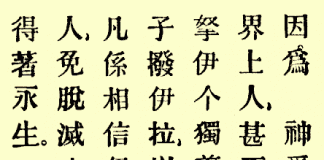 因爲　神
界上人,甚
拏伊个獨
子撥伊拉,
凡係相信
人,免脫滅
得著永生。